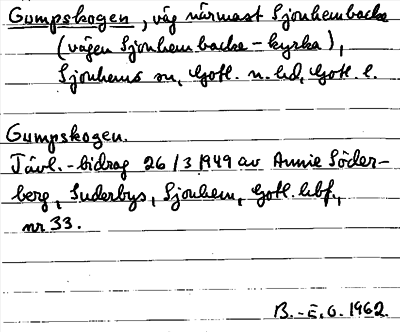 Gumpskogen, väg närmast Sjonhem backe
(vägen Sjonhem backe - kyrka),
Sjonhems sn, Gotl. n. hd, Gotl. l.
Gumpskogen.
Tävl.-bidrag 26/3 1949 av Annie Söder-
berg, Suderbys, Sjonhem, Gotl. hbf.,
nr 33.
B.-E. O. 1962.